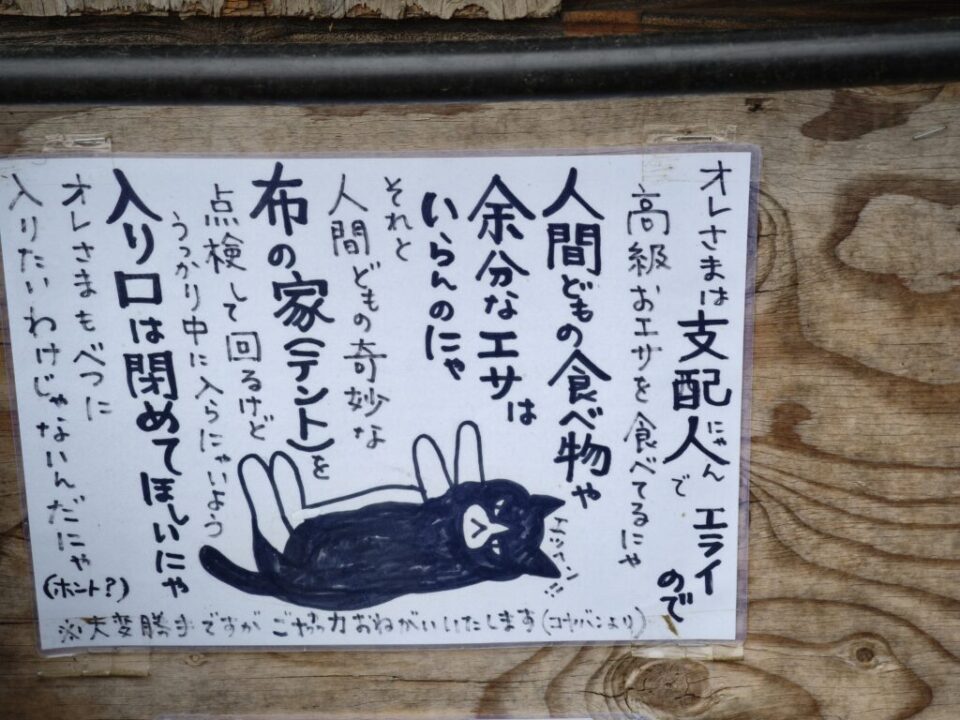 オレさまは支配人にゃんで エライので
高級おエサを食べてるにゃ
人間どもの食べ物や
余分なエサは
いらんのにゃ
それと
人間どもの奇妙な
布の家(テント)を
点検して回るけど
うっかり中に入らにゃいよう
入り口は閉めてほしいにゃ
オレさまもべつに
入りたいわけじゃないんだにゃ
(ホント?)
エッヘン!!
※大変勝手ですが ご協力おねがいいたします(コヤバンより)